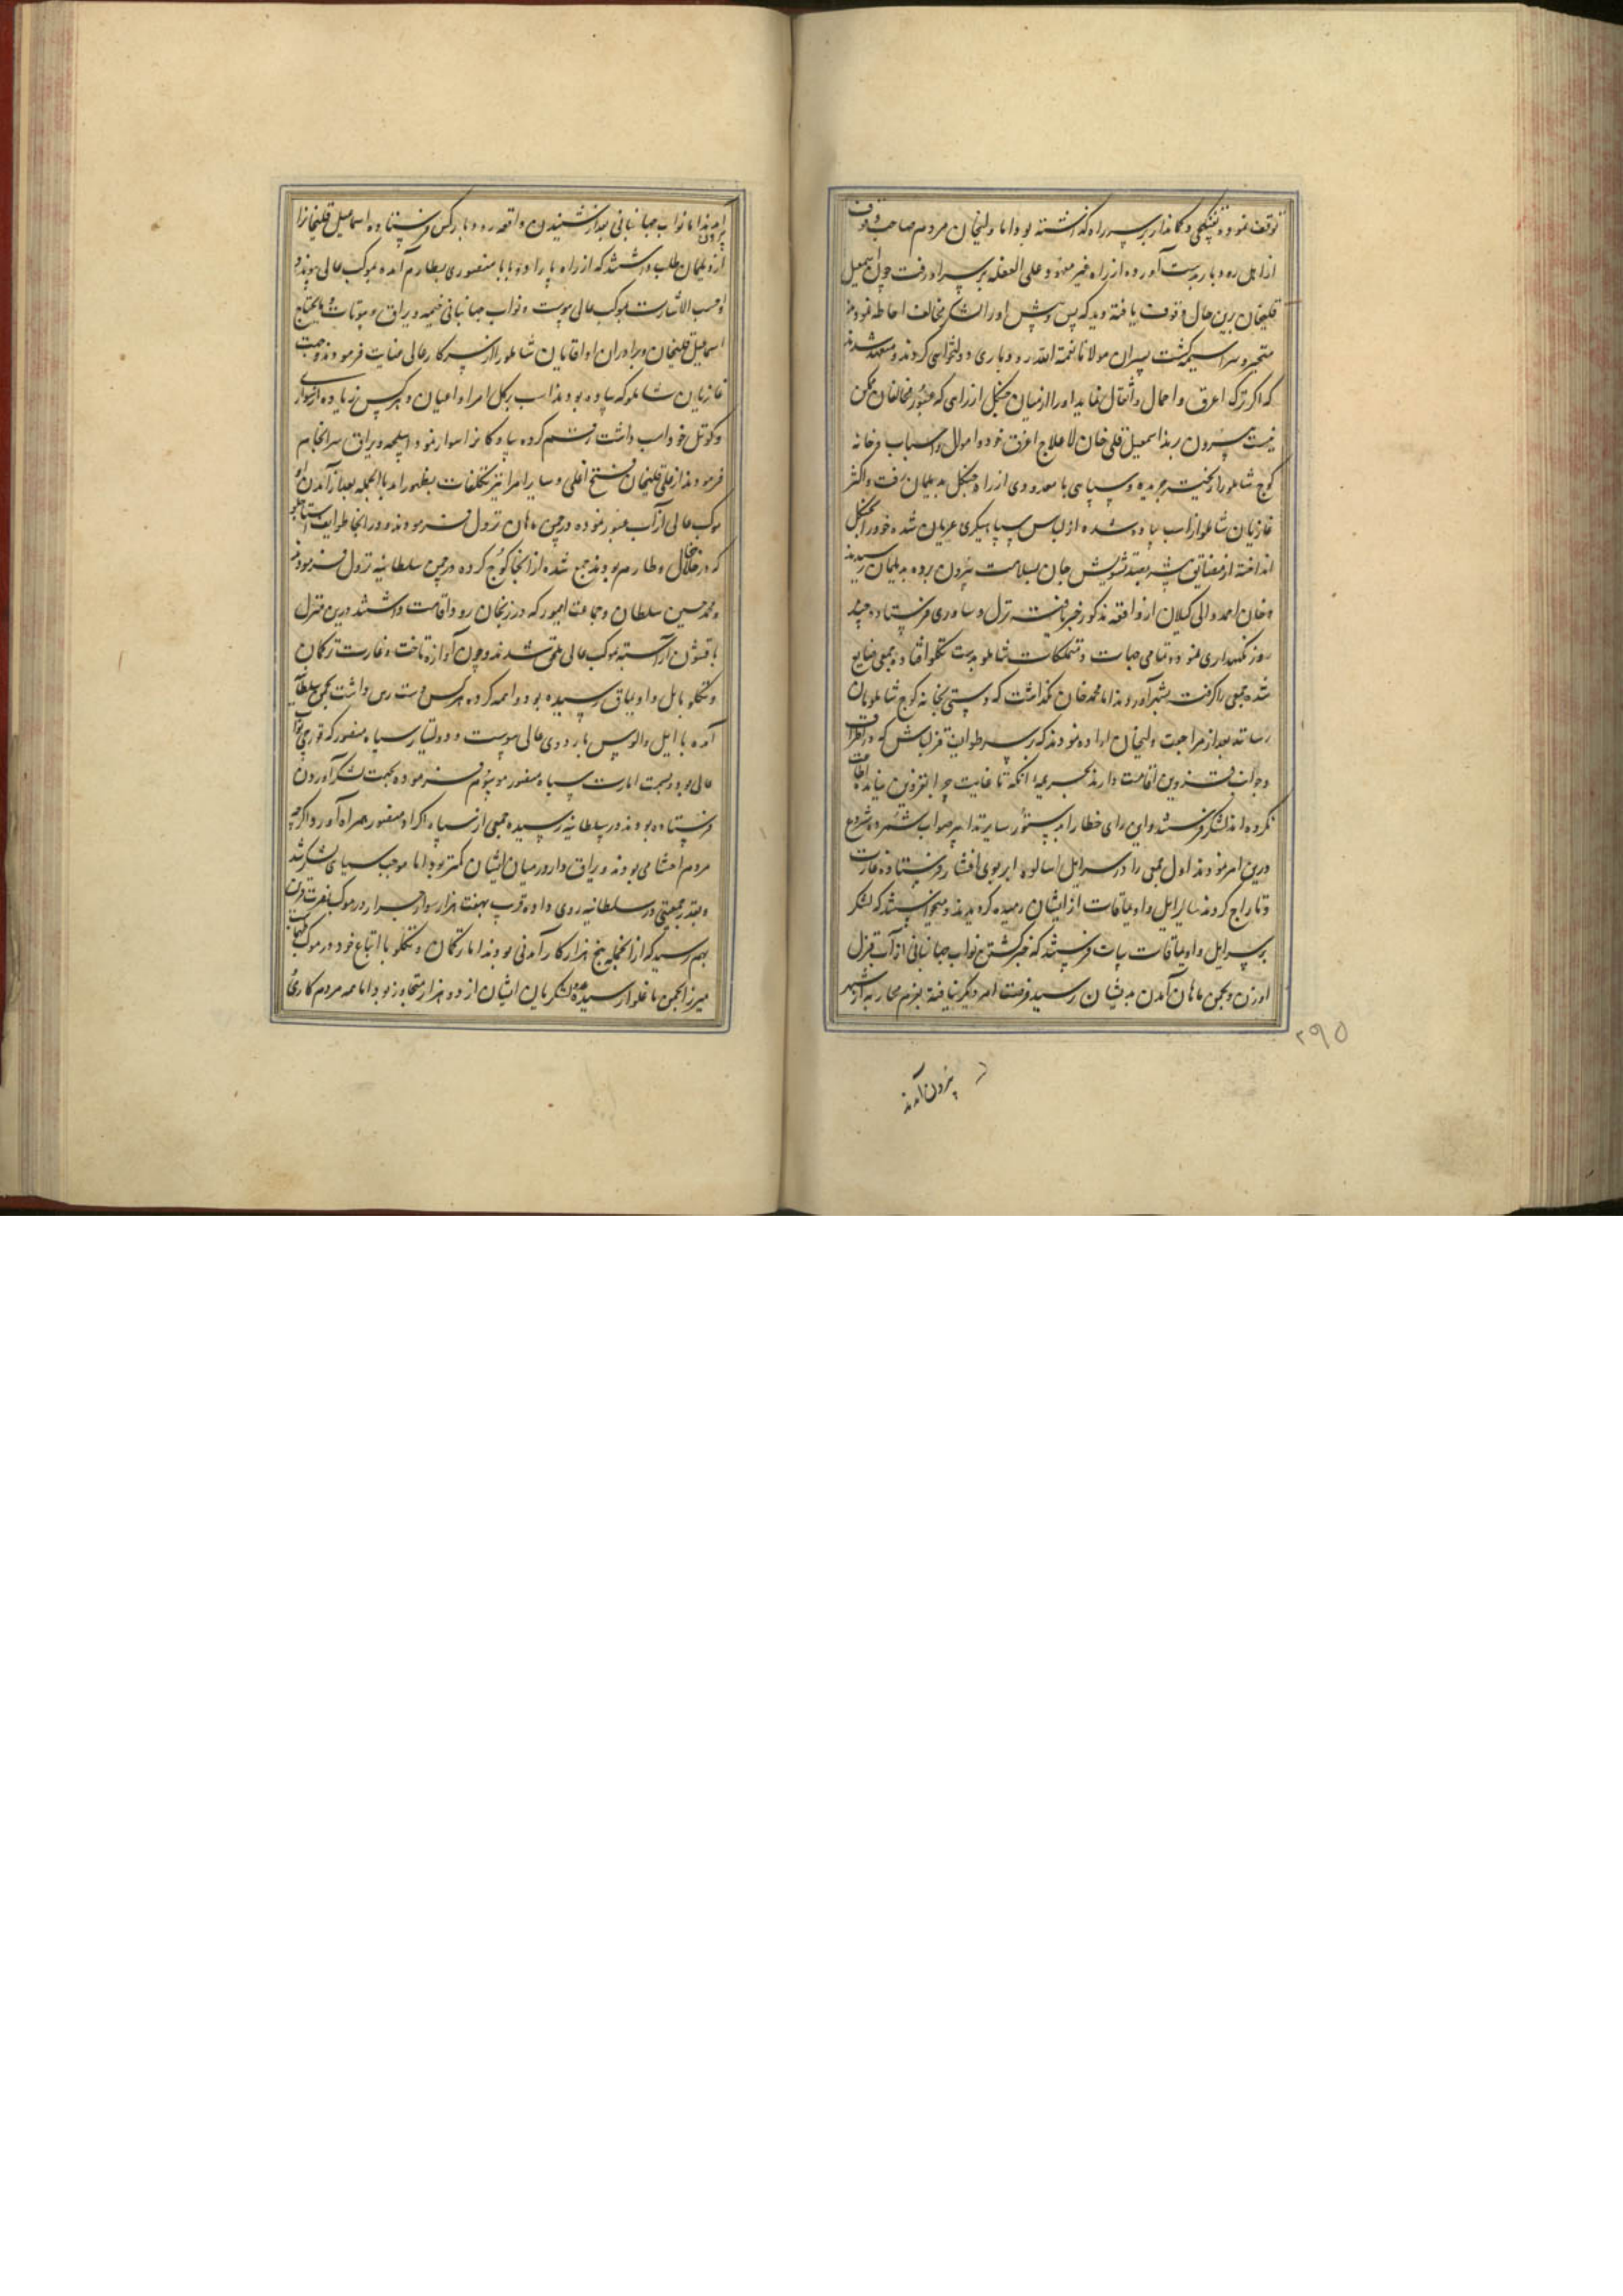 توقف نموده تفنگچی و کماندار بر سر راه گذاشته بود اما ولیخان مردم صاحب وقوف
از اهل رودبار بدست آورده از راه غیر معهود علی الغفله بر سر او رفت چون اسمعیل
قلیخان برین حال وقوف یافته دید که پس و پیش او را لشکر مخالف احاطه نموده‌اند
متحیر و سراسیمه گشت پسران مولانا نعمة الله رودباری دولتخواهی کردند و متعهد شدند
که اگر ترک اغرق و احمال و اثقال نماید او را از میان جنگل از راهی که عبور مخالفان ممکن
نیست بیرون برند اسمعیل قلی خان لاعلاج اغرق خود و اموال و اسباب و خانه
کوچ شاملو را ریخته جریده و سپاهی با معدودی از راه جنگل به دیلمان رفت و اکثر
غازیان شاملو از اسب پیاده شده از لباس سپاهیگری عریان شده خود را بجنگل
انداخته از مضایق بیشه بصد تشویش جان بسلامت بیرون برده به دیلمان رسیدند
و خان احمد والی گیلان از واقعه مذکور خبر یافته نزل و ساوری فرستاد و چند
روز نگهداری نموده تمامی جهات و متملکات شاملو بدست تکلو افتاده جمعی ضایع
شده جمعی را گرفته بشهر آوردند اما محمدخان نگذاشت که دستی بخانه کوچ شاملویان
رسانند بعد از مراجعت ولیخان اراده نمودند که بر سر طوایف قزلباش که در اطراف
و جوانب قزوین اقامت دارند بجریمه آنکه تا غایت چرا بقزوین نیامده اطاعت
نکرده‌اند لشکر فرستند و این رای خطا را بدستور سایر تدابیر صواب شمرده شروع
درین امر نمودند اول جمعی را بر سر ایل اسالوی ایربوی افشار فرستاده غارت
و تاراج کردند سایر ایل و اویماقات از ایشان رمیده گردیدند و میخواستند که لشکر
بر سر ایل و اویماقات بیات فرستند که خبر گذشتن نواب جهانبانی از آب قزل
اوزن و بچمن ماهان آمدن بدیشان رسید فرصت امر دیگر نیافته بعزم محاربه از شهر
بیرون آمدند
۲۹۵
بیرون آمدند اما نواب جهانبانی بعد از شنیدن واقعه رودبار کس فرستاده اسماعیل قلیخان را
از دیلمان طلب داشتند که از راه پاراو و بابا منصوری بطارم آمده بموکب عالی پیوندد
او حسب الاشارت بموکب عالی پیوست و نواب جهانبانی خیمه و یراق و بیوتات و مایحتاج
اسماعیل قلیخان و برادران او آقایان شاملو را از سرکار عالی عنایت فرمودند و جهت
غازیان شاملو که پیاده بودند اسب بر کل امرا و اعیان و هر کس زیاده از سواری
و کوتل خود اسب داشت رقم کرده پیادگان را سوار نمود و اسلحه و یراق سرانجام
فرمودند از علیقلیخان فتح اغلی و سایر امرا نیز تکلفات بظهور آمد بالجمله بعد از آمدن او
موکب عالی از آب عبور نموده در چمن ماهان نزول فرمودند و در آنجا طوایف استاجلو
که در خلخال و طارم بودند جمع شده از آنجا کوچ کرده در چمن سلطانیه نزول فرمودند
و محمد حسین سلطان و جماعت ایمور که در زنجان رود اقامت داشتند درین منزل
با قشون آراسته بموکب عالی ملحق شدند و چون آوازه تاخت و غارت ترکمان
و تکلو بایل و اویماق رسیده بود واهمه کرده هر کس دست رس داشت بچمن سلطانیه
آمده با ایل و الوس باردوی عالی پیوست و دولتیار سیاه منصور که قورچی نواب
عالی بود و بجهت امارت سیاه منصور موسوم فرموده بجهت لشکر آوردن
فرستاده بودند در سلطانیه رسیده جمعی از سپاه اکراد سیاه منصور همراه آورد اگرچه
مردم احشامی بودند و یراق دار در میان ایشان کمتر بود اما موجب سیاهی لشکر شد
و بقدر جمعیتی در سلطانیه روی داده قریب بهفت هزار سوار جرار در موکب نصرت قرین
بهم رسید که از آنجمله پنج هزار کار آمدنی بودند اما ترکمان و تکلو با اتباع خود در موکب طهماسب
میرزا بچمن ماغلوار رسیده لشکریان ایشان از دو هزار متجاوز نبود اما همه مردم کاری